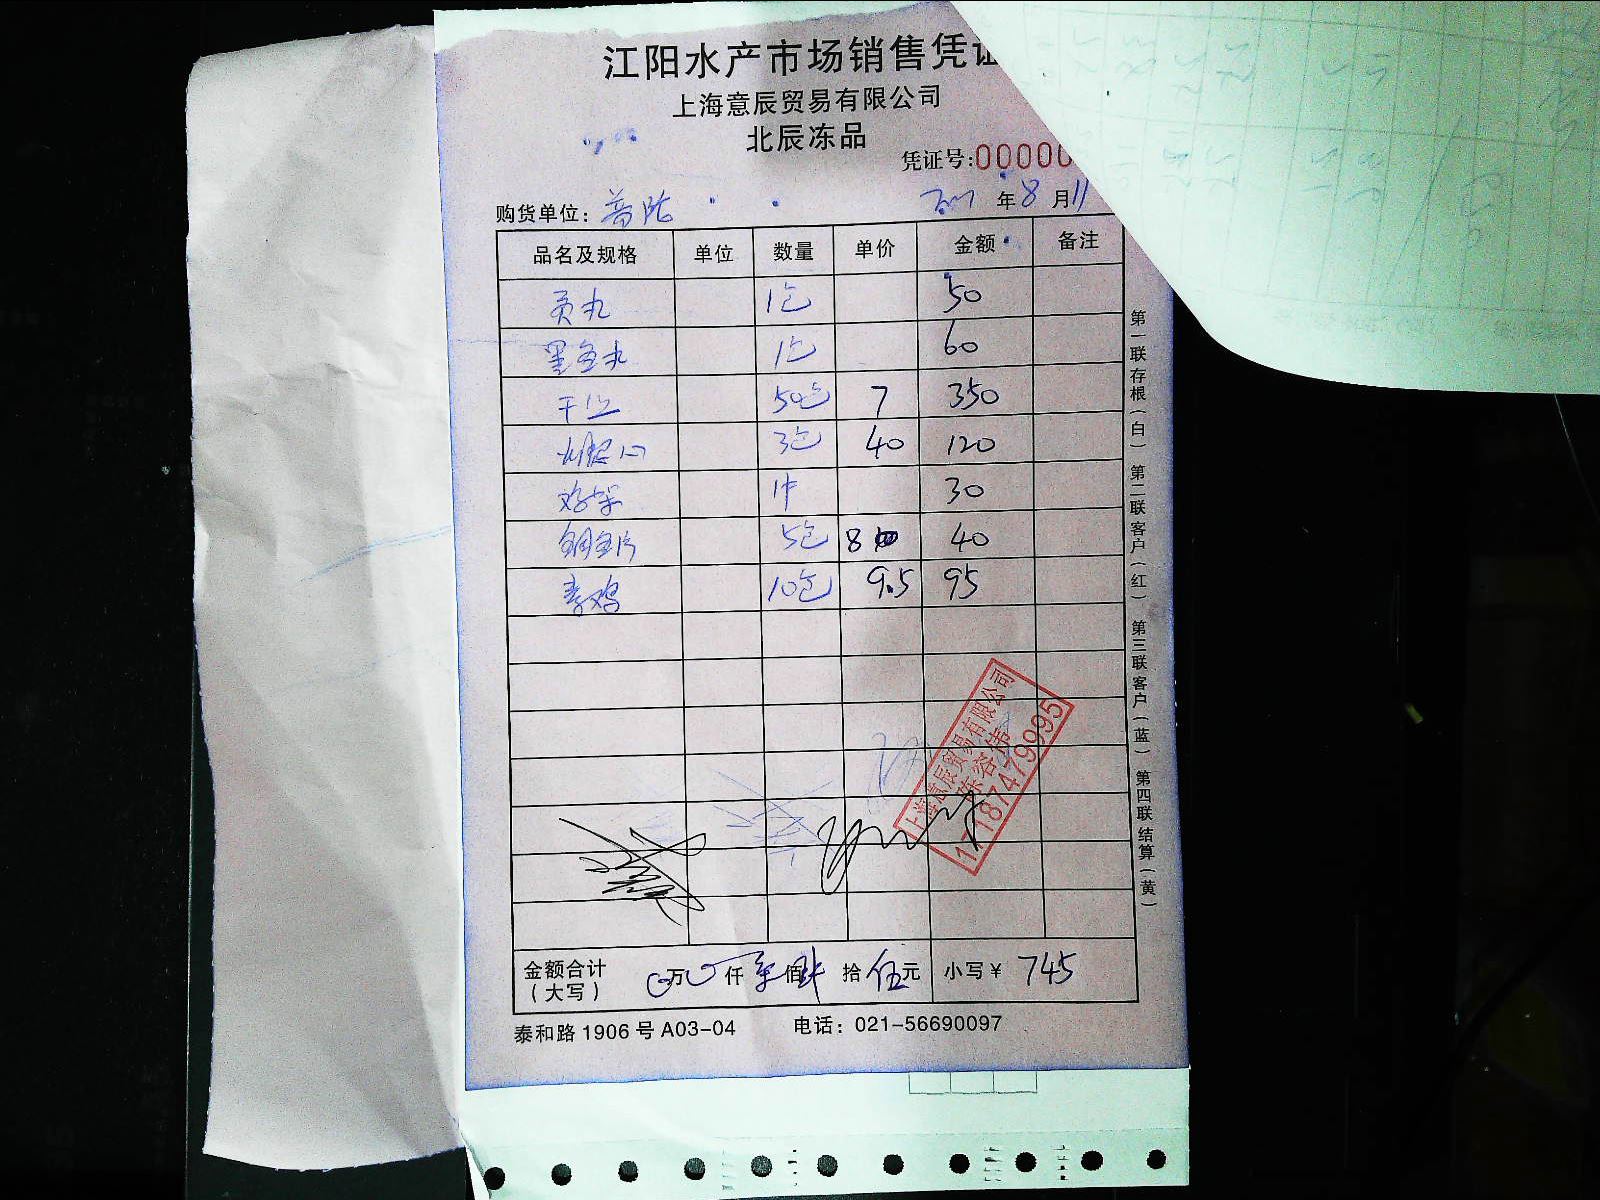 江阳水产市场销售凭证
上海意辰贸易有限公司
北辰冻品
凭证号:00000
购货单位: 普陀 年 8 月 11
品名及规格 单位 数量 单价 金额 备注
贡丸 1包 50
墨鱼丸 1包 60
50包 7 350
3包 40 120
鸡架 1件 30
5包 8 40
素鸡 10包 9.5 95
上海意辰贸易有限公司
17187479995
金额合计 万 仟 柒 佰 肆 拾 伍 元 小写¥ 745
(大写)
泰和路1906号A03-04 电话:021-56690097
第一联存根(白) 第二联客户(红) 第三联客户(蓝) 第四联结算(黄)